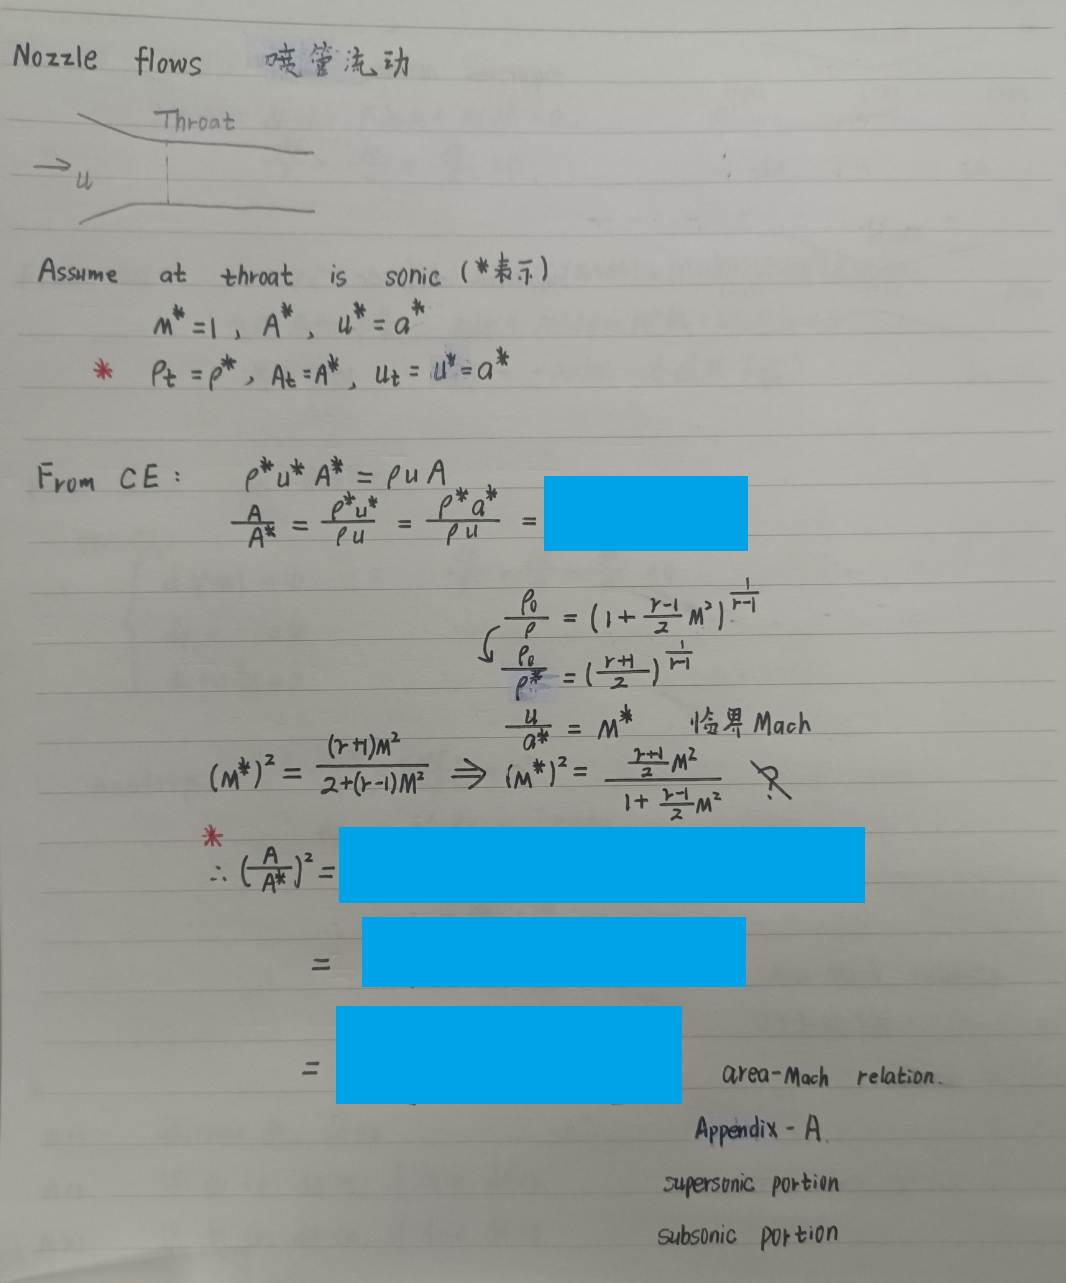 Nozzle flows 喷管流动
Throat
→ u
Assume at throat is sonic (*表示)
M*=1, A*, u*=a*
* ρt=ρ*, At=A*, ut=u*=a*
From CE: ρ*u*A*=ρuA
A/A* = ρ*u*/ρu = ρ*a*/ρu =
ρ0/ρ = (1+(γ-1)/2 M²)^(1/(γ-1))
ρ0/ρ* = ((γ+1)/2)^(1/(γ-1))
u/a* = M* 临界Mach
(M*)² = (γ+1)M²/(2+(γ-1)M²) ⇒ (M*)² = ((γ+1)/2 M²)/(1+(γ-1)/2 M²)
*
∴ (A/A*)² =
=
= area-Mach relation.
Appendix-A.
supersonic portion
subsonic portion